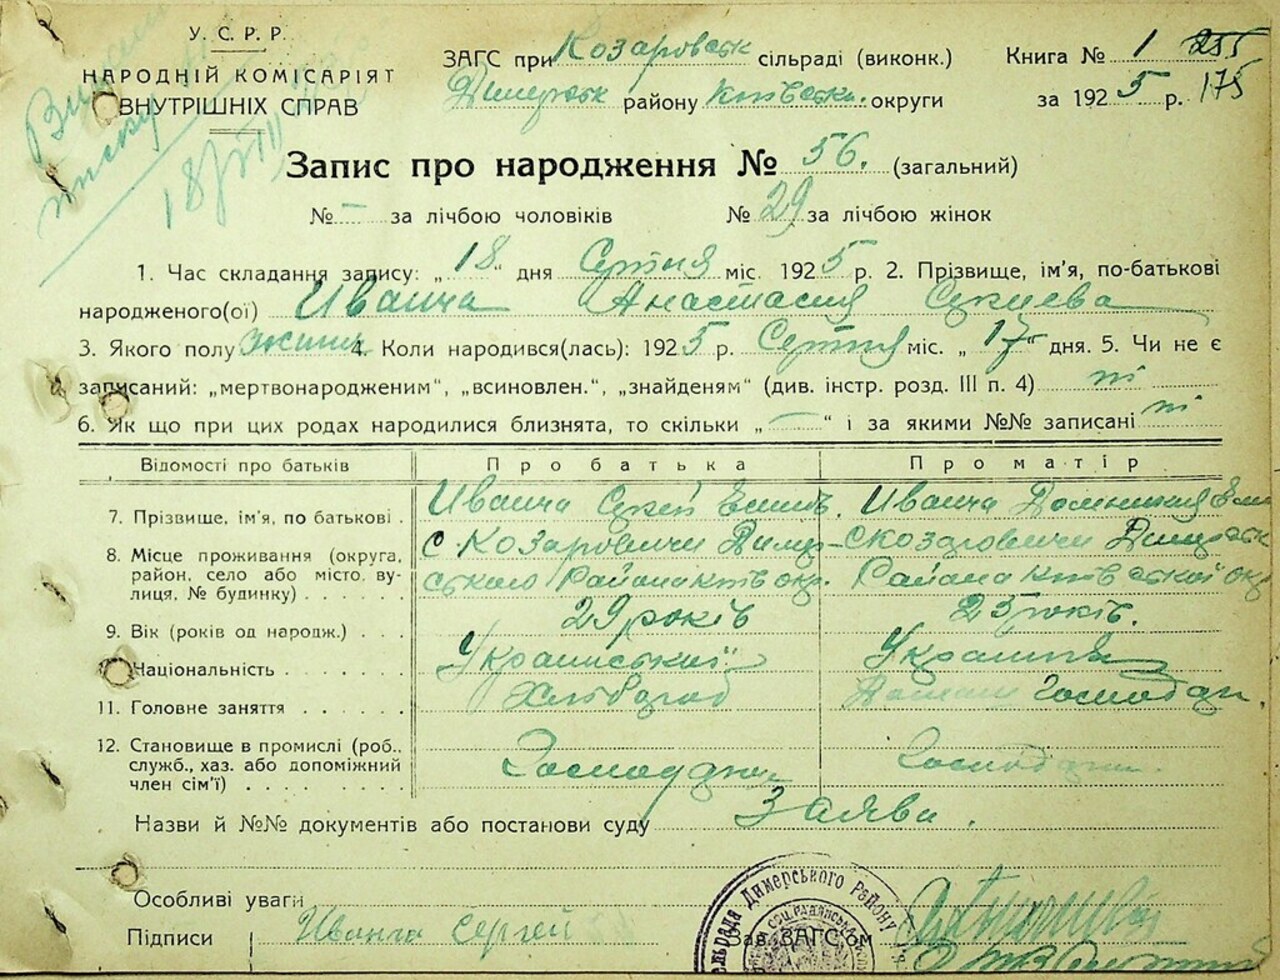 У. С. Р. Р.
НАРОДНІЙ КОМІСАРІЯТ
ВНУТРІШНІХ СПРАВ
18/VIII
ЗАГС при Козаровськ сільраді (виконк.) Книга № 1 255
Димерськ району Київськ. округи за 1925 р. 175
Запис про народження № 56. (загальний)
№ – за лічбою чоловіків № 29 за лічбою жінок
1. Час складання запису: „18“ дня Серпня міс. 1925 р. 2. Прізвище, ім'я, по-батькові
народженого(ої) Иванча Анастасия
3. Якого полу 4. Коли народився(лась): 1925 р. Серпня міс. „17“ дня. 5. Чи не є
записаний: „мертвонародженим“, „всиновлен.“, „знайденям“ (див. інстр. розд. III п. 4) ні
6. Як що при цих родах народилися близнята, то скільки „–“ і за якими №№ записані ні
Відомості про батьків Про батька Про матір
7. Прізвище, ім'я, по батькові . Иванча Иванча
8. Місце проживання (округа, с. Козаровичи Димер- с Козаровичи Димерськ
район, село або місто, ву- ського Района Київ окр. Района Київської окр
лиця, № будинку) . . . . . .
9. Вік (років од народж.) . . . 29 років 25 років.
Національність . . . . . . . Український Українка
11. Головне заняття . . . . . . Хлібороб Домашн Господар.
12. Становище в промислі (роб.,
служб., хаз. або допоміжний Господар
член сім'ї) . . . . . . . . .
Назви й №№ документів або постанови суду Заява.
Особливі уваги
Підписи Иванча Сергей Зав. ЗАГС'ом
Димерського Району